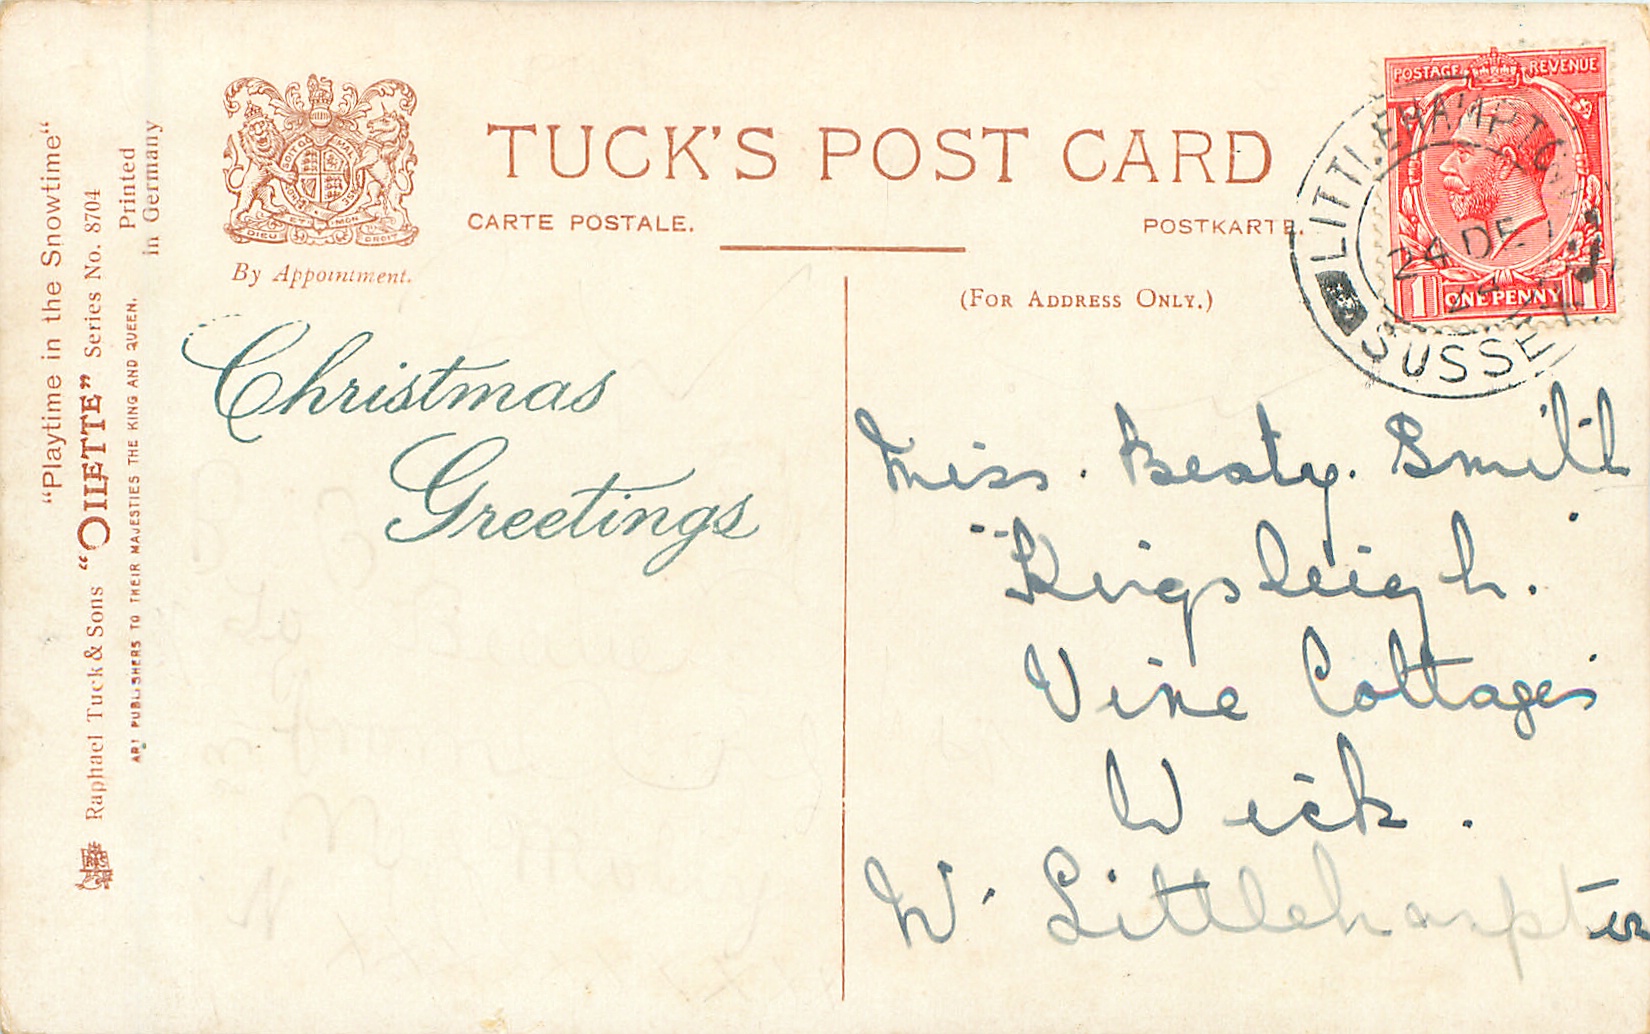 "Playtime in the Snowtime"
Raphael Tuck & Sons "OILETTE" Series No. 8704
ART PUBLISHERS TO THEIR MAJESTIES THE KING AND QUEEN.
Printed
in Germany
DIEU ET MON DROIT
By Appointment.
TUCK'S POST CARD
CARTE POSTALE.
POSTKARTE.
(FOR ADDRESS ONLY.)
POSTAGE REVENUE
1 ONE PENNY 1
LITTLEHAMPTON
24 DE
SUSSEX
Christmas
Greetings
Miss. Beaty. Smith
"Kingsleigh."
Vine Cottages
Wick.
W. Littlehampton